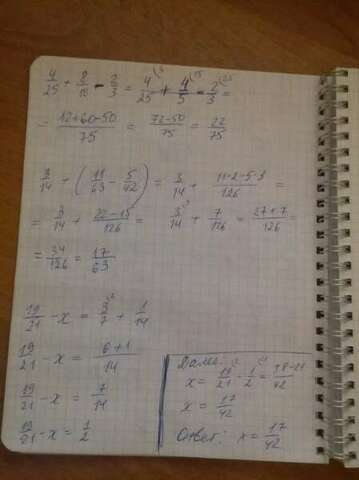 4/25 + 8/10 - 2/3 = 4/25 + 4/5 - 2/3 =
= 12+60-50/75 = 72-50/75 = 22/75
3/14 + (11/63 - 5/42) = 3/14 + 11·2-5·3/126 =
= 3/14 + 22-15/126 = 3/14 + 7/126 = 27+7/126 =
= 34/126 = 17/63
19/21 - x = 3/7 + 1/14
19/21 - x = 6+1/14
19/21 - x = 7/14
19/21 - x = 1/2
Далее
x = 19/21 - 1/2 = 38-21/42
x = 17/42
Ответ: x = 17/42